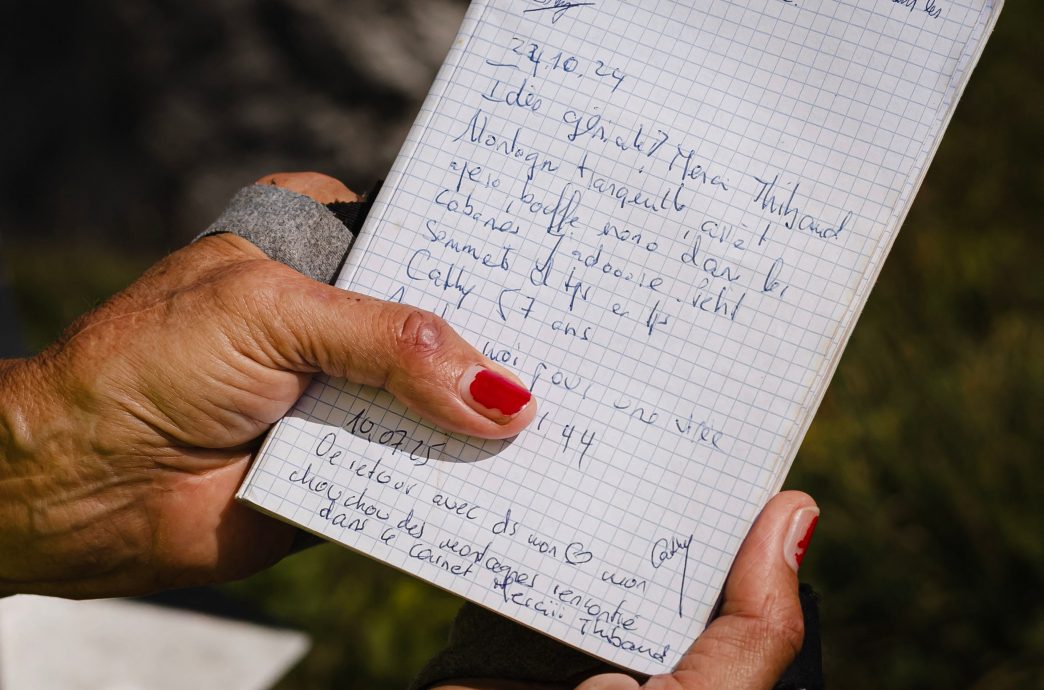 les
24.10.24
Idée géniale? Merci Thibaud
Montagn tranquille arrêt
apéro bouffe mono dans les
Cabanes j'adooore. Petit
Sommets et tps en tps
Cathy 57 ans
moi pour une virée
44
10.07.25
De retour avec ds mon mon
chouchou des montagnes rencontré
dans le carnet Merciii Thibaud
Cathy